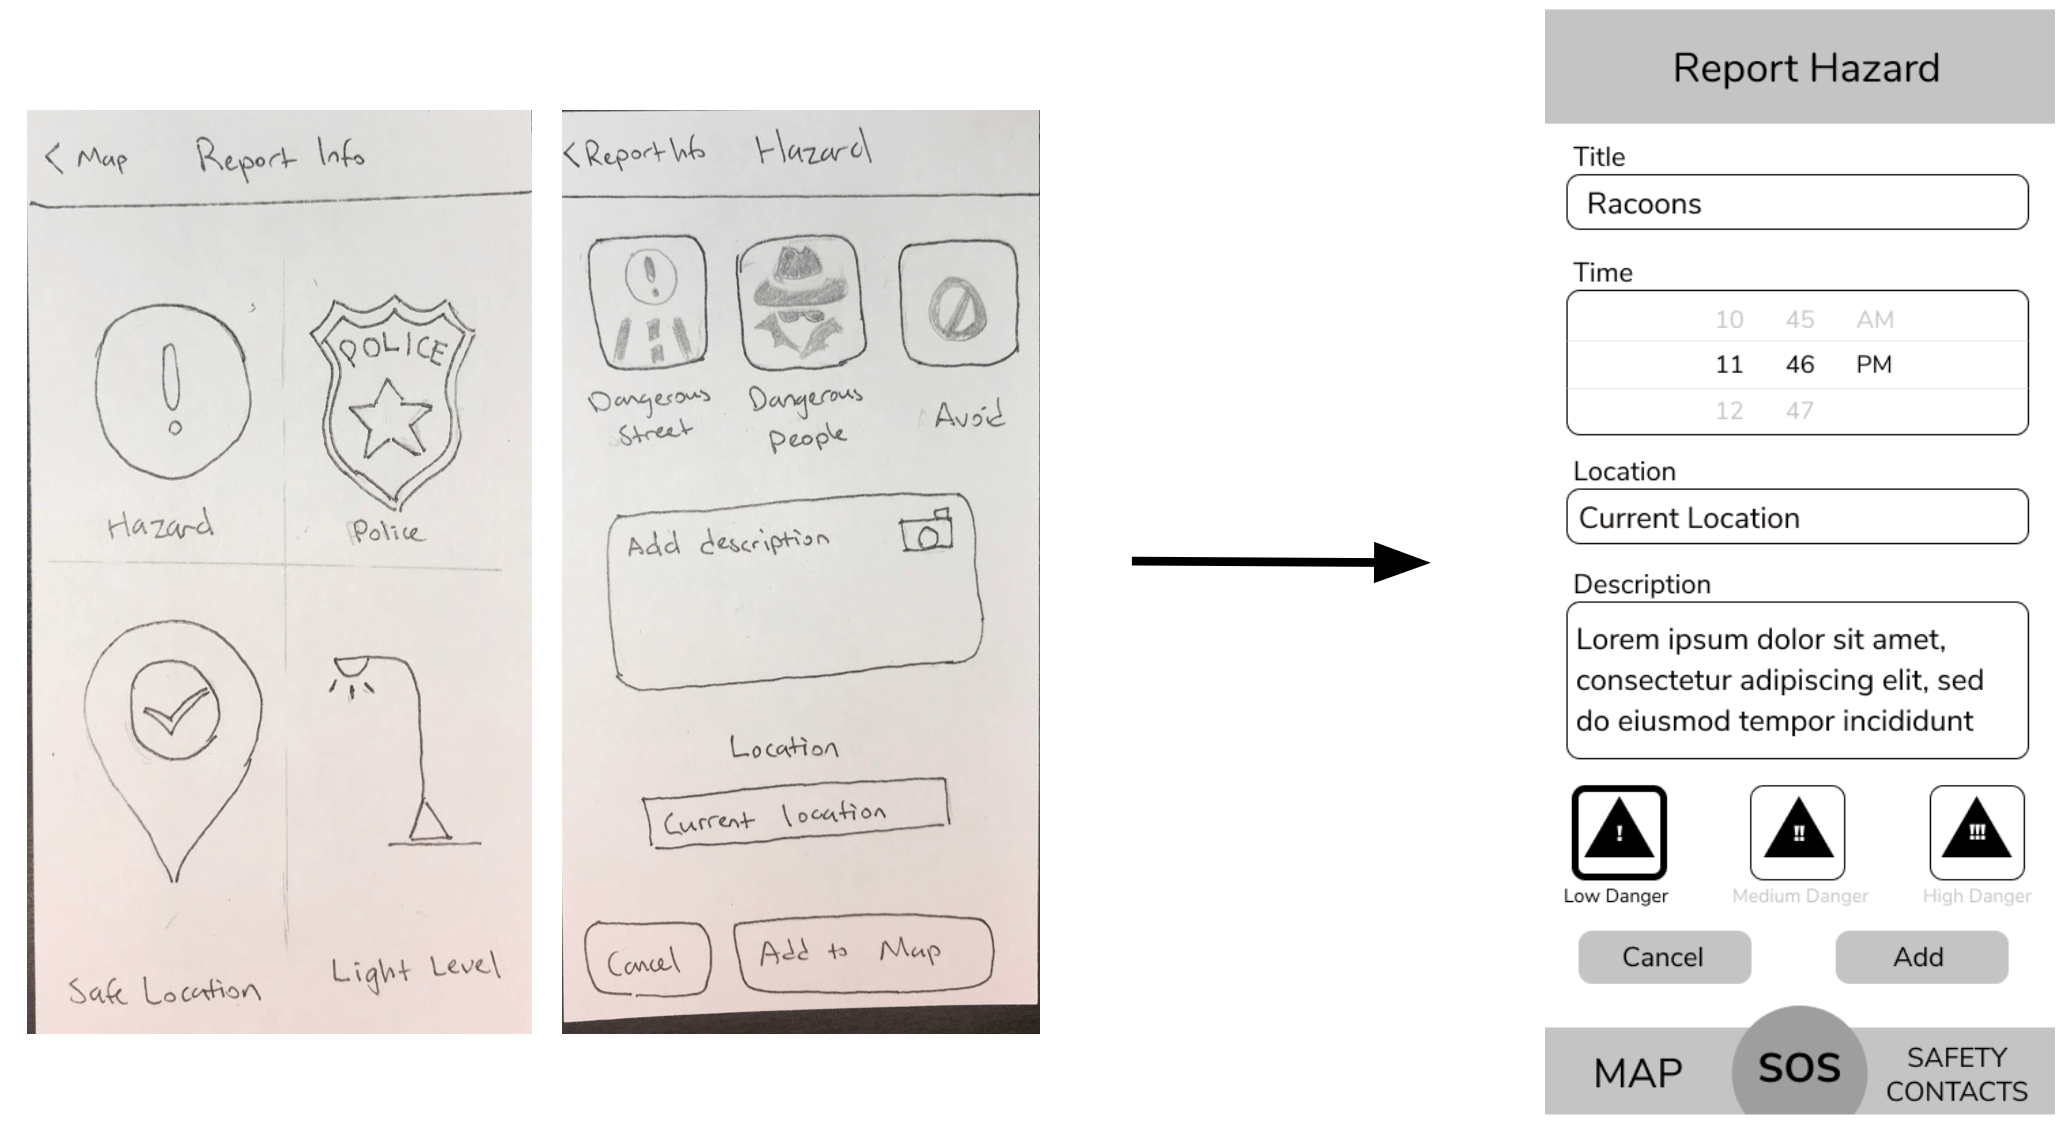 < Map Report Info
POLICE
Hazard
Police
Safe Location
Light Level
< Report Info Hazard
!
Dangerous
Street
Dangerous
People
Avoid
Add description
Location
Current location
Cancel
Add to Map
Report Hazard
Title
Racoons
Time
10 45 AM
11 46 PM
12 47
Location
Current Location
Description
Lorem ipsum dolor sit amet,
consectetur adipiscing elit, sed
do eiusmod tempor incididunt
! !! !!!
Low Danger Medium Danger High Danger
Cancel Add
MAP
SOS
SAFETY
CONTACTS